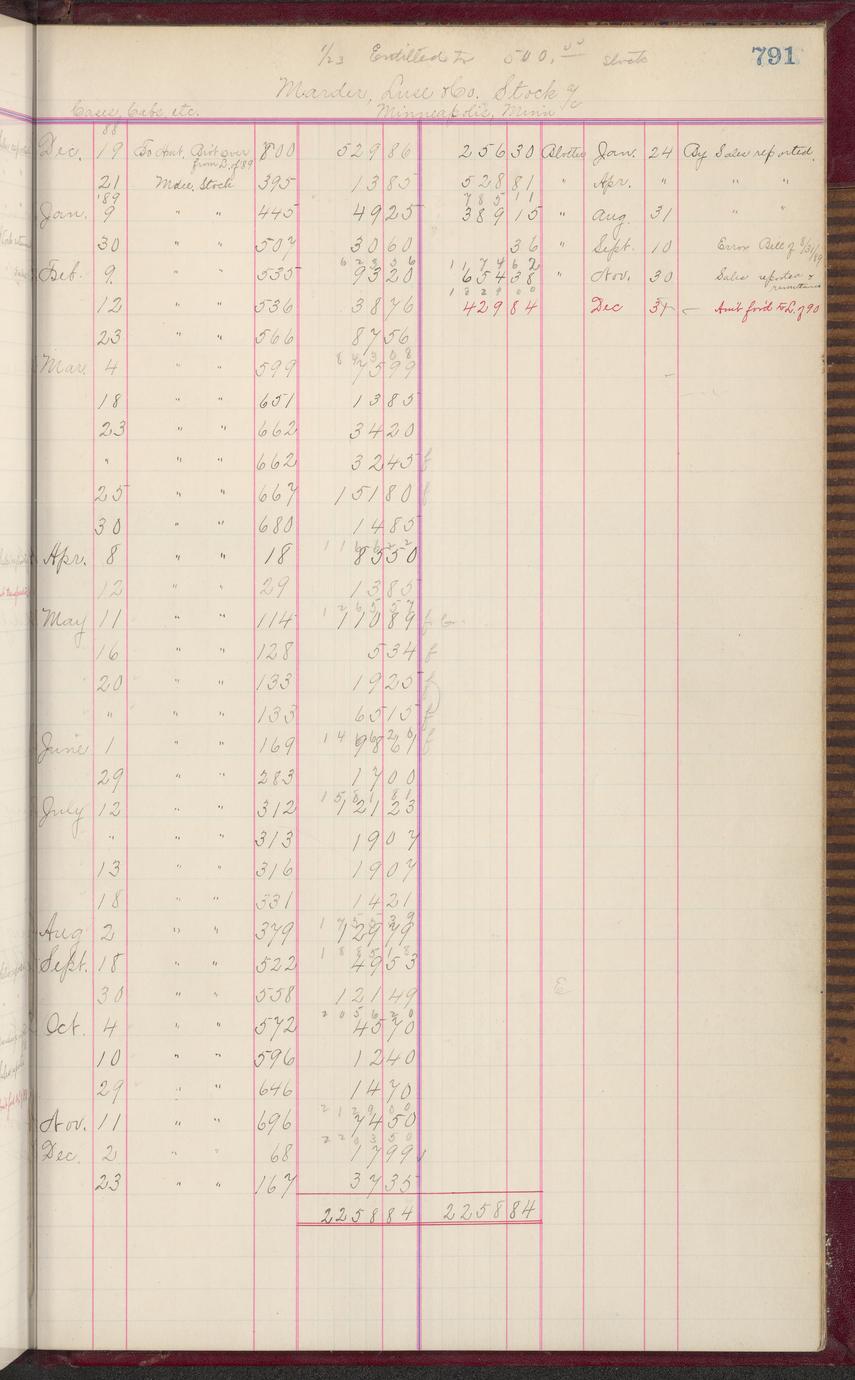 1/23 Entitled to 500.00 stock
791
Marder, Luse & Co. Stock a/c
Cases, Cabs, etc. Minneapolis, Minn
88
Dec. 19 To Amt. Bro't over from L. of 89 800 529 86 256 30 Blotter Jan. 24 By Sales reported.
21 Mdse. Stock 395 13 85 528 81 " Apr. " " "
'89 785 11
Jan. 9 " " 445 49 25 389 15 " Aug. 31 " "
30 " " 507 30 60 36 " Sept. 10 Error Bill of 8/31/89
628 56 1174 62
Feb. 9. " " 535 93 20 654 38 " Nov. 30 Sales reported & remittance
1829 00
12 " " 536 38 76 429 84 Dec 31 Amt for'd to L. of 90
23 " " 566 87 56
843 08
Mar. 4 " " 599 75 99
18 " " 651 13 85
23 " " 662 34 20
" " " 662 32 45 f
25 " " 667 151 80 f
30 " " 680 14 85
1166 22
Apr. 8 " " 18 85 50
12 " " 29 13 85
1265 57
May 11 " " 114 110 89 f
16 " " 128 5 34 f
20 " " 133 19 25 f
" " " 133 65 15 f
1466 20
June 1 " " 169 98 61 f
29 " " 283 17 00
1581 81
July 12 " " 312 121 23
" " " 313 19 07
13 " " 316 19 07
18 " " 331 14 21
1755 39
Aug 2 " " 379 129 79
1885 18
Sept. 18 " " 522 49 53
30 " " 558 121 49
2056 20
Oct. 4 " " 572 45 70
10 " " 596 12 40
29 " " 646 14 70
2129 00
Nov. 11 " " 696 74 50
2203 50
Dec. 2 " " 68 17 99
23 " " 167 37 35
2258 84 2258 84